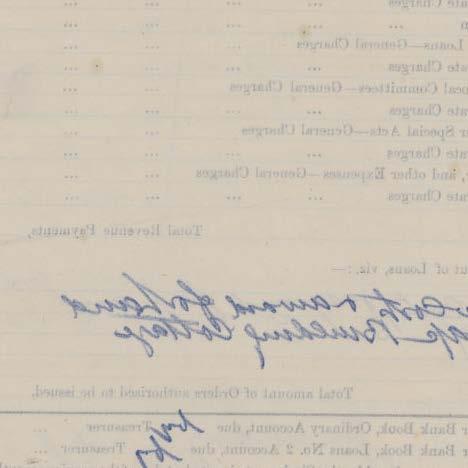 ate Charges ... ... ...
n ... ... ...
Loans—General Charges ... ...
ate Charges ... ... ...
pecal Committees—General Charges ... ...
ate Charges ... ... ...
r Special Acts—General Charges ... ...
ate Charges ... ... ...
, and other Expenses—General Charges ... ...
ate Charges ... ... ...
Total Revenue Payments,
ut of Loans, viz. :—
Cost & award for Land
Building Cottage
Total amount of Orders authorised to be issued,
r Bank Book, Ordinary Account, due Treasurer ...
r Bank Book, Loans No. 2 Account, due Treasurer ...